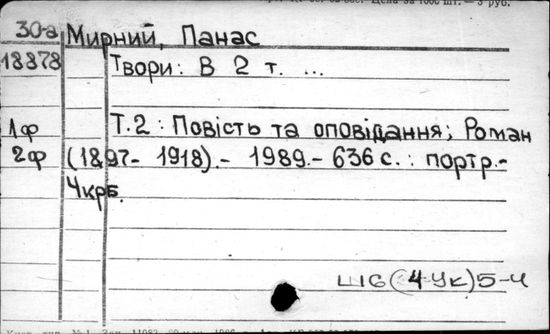 30-а Мирний, Панас
18378 Твори: В 2 т. ...
1ф Т.2: Повість та оповідання; Роман
2ф (1897-1918).- 1989.- 636 с.: портр.-
Укрб.
Ш6(4Ук)5-4